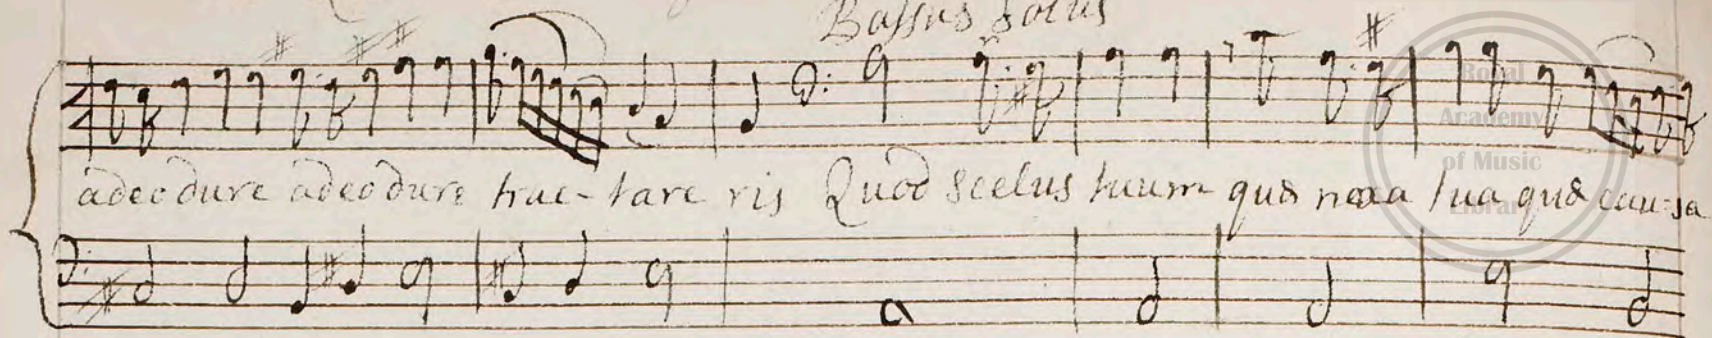 Bassus solus
adeo dure adeo dure trac-tare ris Quod scelus tuum quæ noxa tua quæ cau-sa
Royal
Academy
of Music
Library